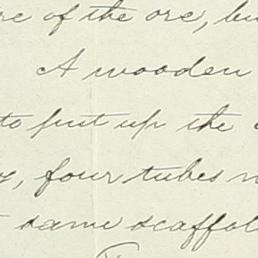 of the ore,
A wooden
to put up the
four tubes
same scaffol